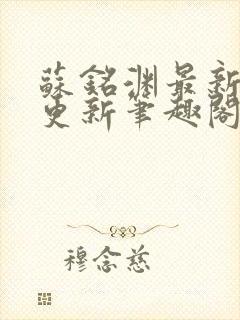 蘇銘淵最新
更新筆趣閣
穆念慈